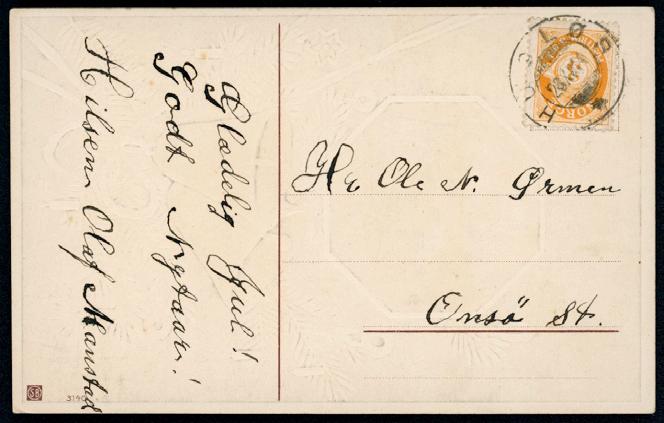 Glædelig Jul!
Godt Nytaar!
Hilsen Olaf Manstad
Hr Ole N. Ørmen
Onsö St.
3
NORGE
SB